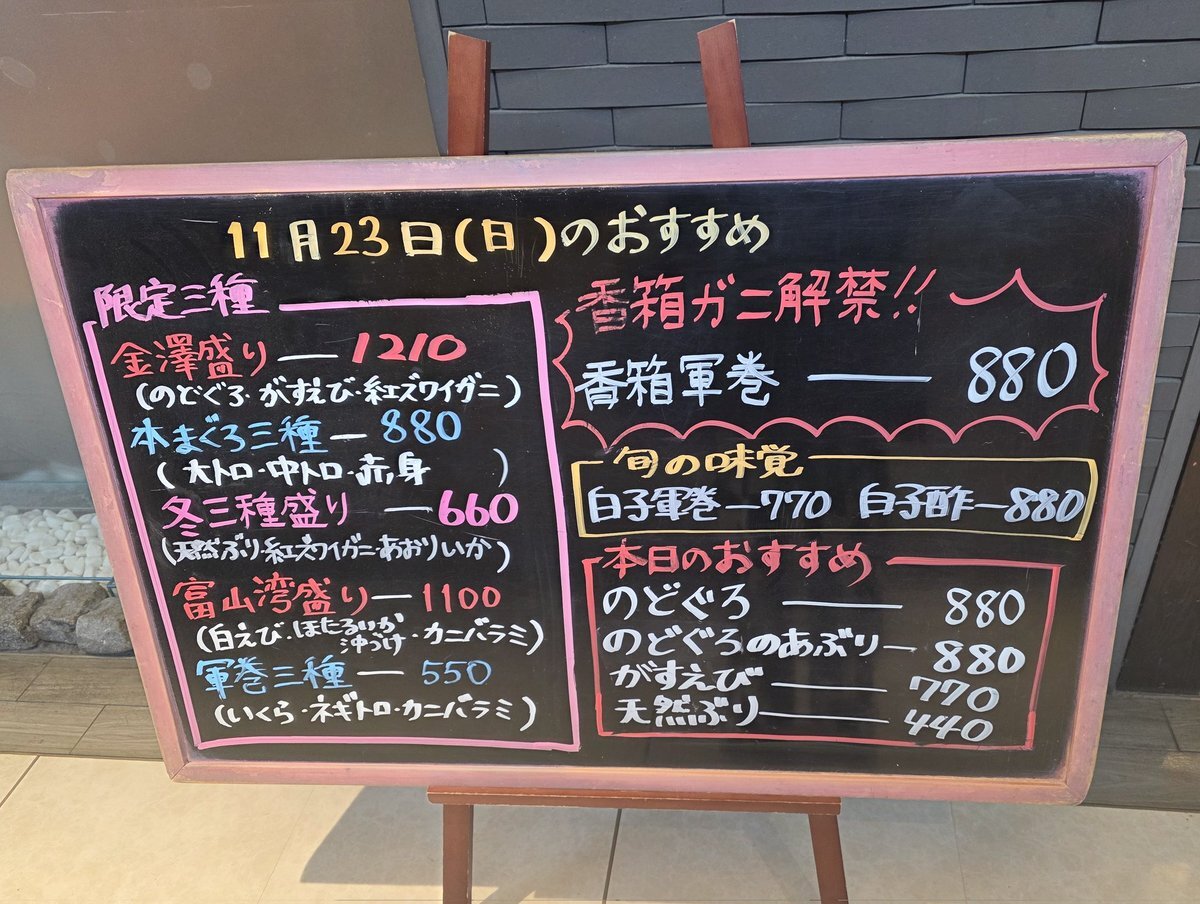 11月23日(日)のおすすめ
限定三種
金澤盛り—1210
(のどぐろ・がすえび・紅ズワイガニ)
本まぐろ三種—880
(大トロ・中トロ・赤身)
冬三種盛り—660
(天然ぶり・紅ズワイガニ・あおりいか)
富山湾盛り—1100
(白えび・ほたるいか沖つけ・カニバラミ)
軍巻三種—550
(いくら・ネギトロ・カニバラミ)
香箱ガニ解禁!!
香箱軍巻—880
旬の味覚
白子軍巻—770 白子酢—880
本日のおすすめ
のどぐろ—880
のどぐろのあぶり—880
がすえび—770
天然ぶり—440